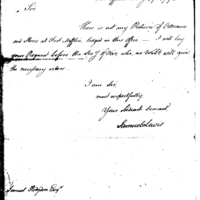 Sir
There is not any Return of Ordnance
and Stores at Fort Mifflin lodged in this Office — I will lay
your Request before the Secy of War, who, no doubt will give
the necessary orders.
I am Sir
most respectfully
Your Obedient Servant
Samuel Lewis
Samuel Hodgdon Esqr